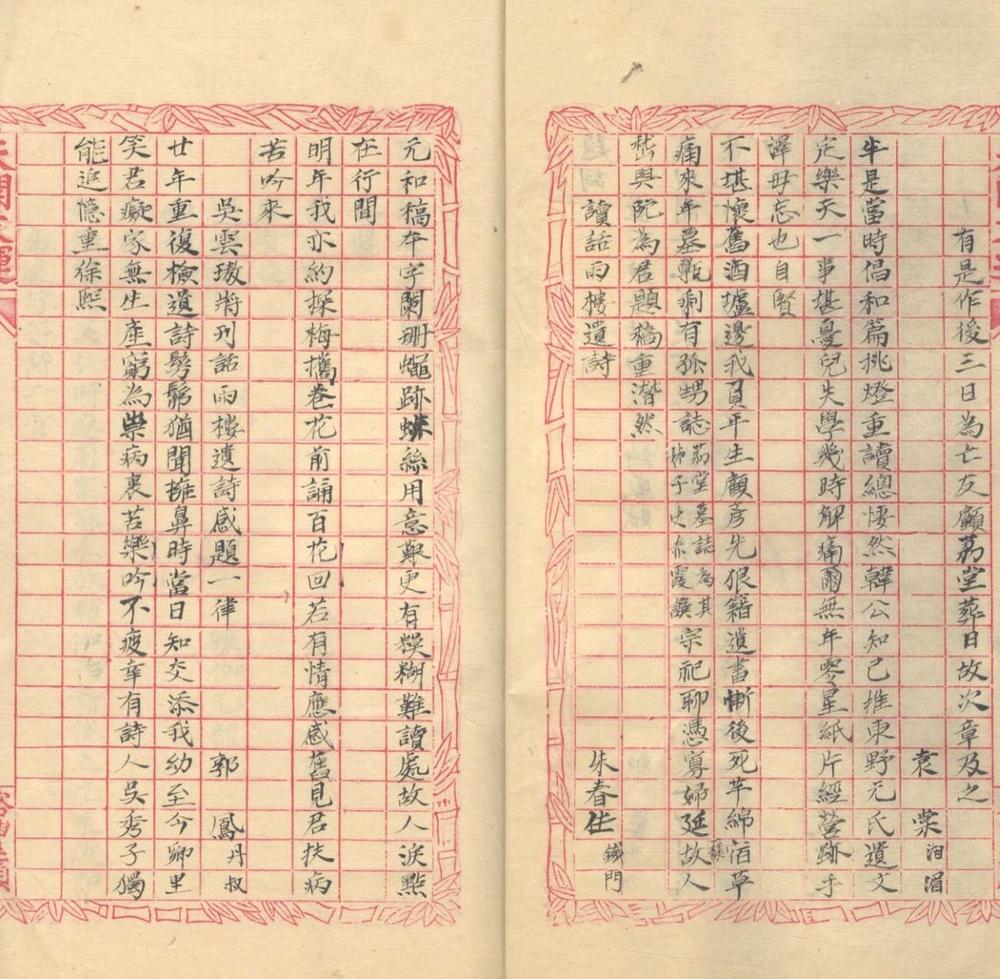 有是作後三日為亡友顧蒻堂葬日故次章及之
袁棠 湘湄
半是當時倡和篇挑燈重讀總悽然韓公知己推東野元氏遺文
定樂天一事堪憂兒失學幾時解痛爾無年零星紙片經營跡手
澤毋忘也自賢
不堪懷舊酒壚邊我負平生顧彥先狠籍遺書慚後死芊綿宿草
痛來年墓甎剩有孤甥誌蒻堂墓誌為其姊子史赤霞譔宗祀聊憑寡婦延故人
嵇與阮為君題稿重潸然
讀話雨樓遺詩
朱春生 鐵門
元和稿本字闌珊蠅跡蛛絲用意艱更有糢糊難讀處故人淚點
在行間
明年我亦約探梅攜卷花前誦百花回若有情應感舊見君扶病
苦吟來
吳雲璈將刋話雨樓遺詩感題一律
郭鳳 丹叔
廿年重復檢遺詩髣髴猶聞擁鼻時當日知交添我幼至今鄉里
笑君癡家無生產窮為祟病裏苦樂吟不疲幸有詩人吳秀子獨
能追憶重徐熙